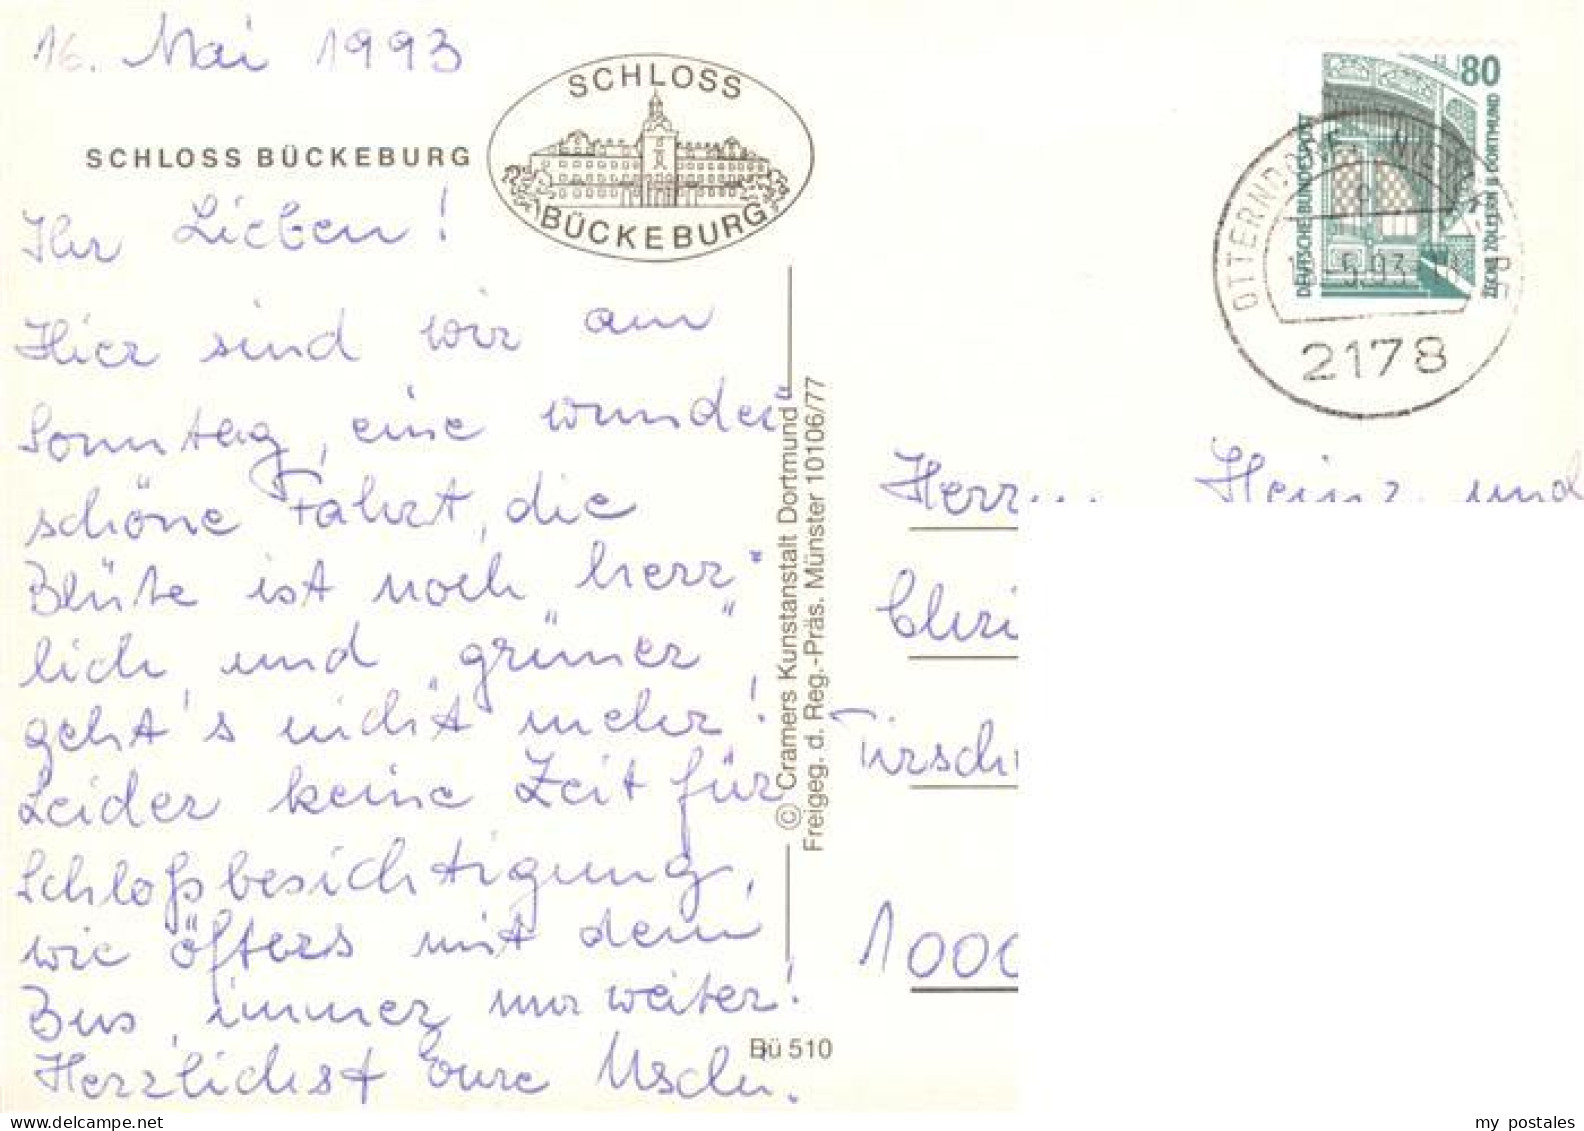 16. Mai 1993
SCHLOSS BÜCKEBURG
SCHLOSS
BÜCKEBURG
Ihr Lieben!
Hier sind wir am
Sonntag, eine wunder-
schöne Fahrt, die
Blüte ist noch herr-
lich, und "grüner"
geht's nicht mehr!
Leider keine Zeit für
Schloßbesichtigung,
wie öfters mit dem
Bus, immer nur weiter!
Herzlichst Eure Uschi.
Bü 510
© Cramers Kunstanstalt Dortmund
Freigeg. d. Reg.-Präs. Münster 10106/77
80
DEUTSCHE BUNDESPOST
ZECHE ZOLLERN II DORTMUND
OTTERNDORF, NIEDERELBE
-5.93
2178
Herr... Heinz und
Chri
Tirsch
1000
my postales
delcampe.net